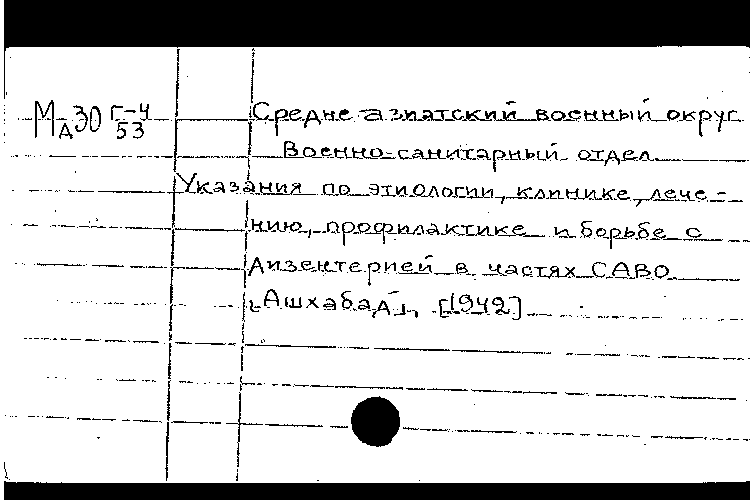 МдЗО Г-4/53
Средне-азиатский военный округ
Военно-санитарный отдел.
Указания по этиологии, клинике, лече-
нию, профилактике и борьбе с
дизентерией в частях САВО.
[Ашхабад], [1942]